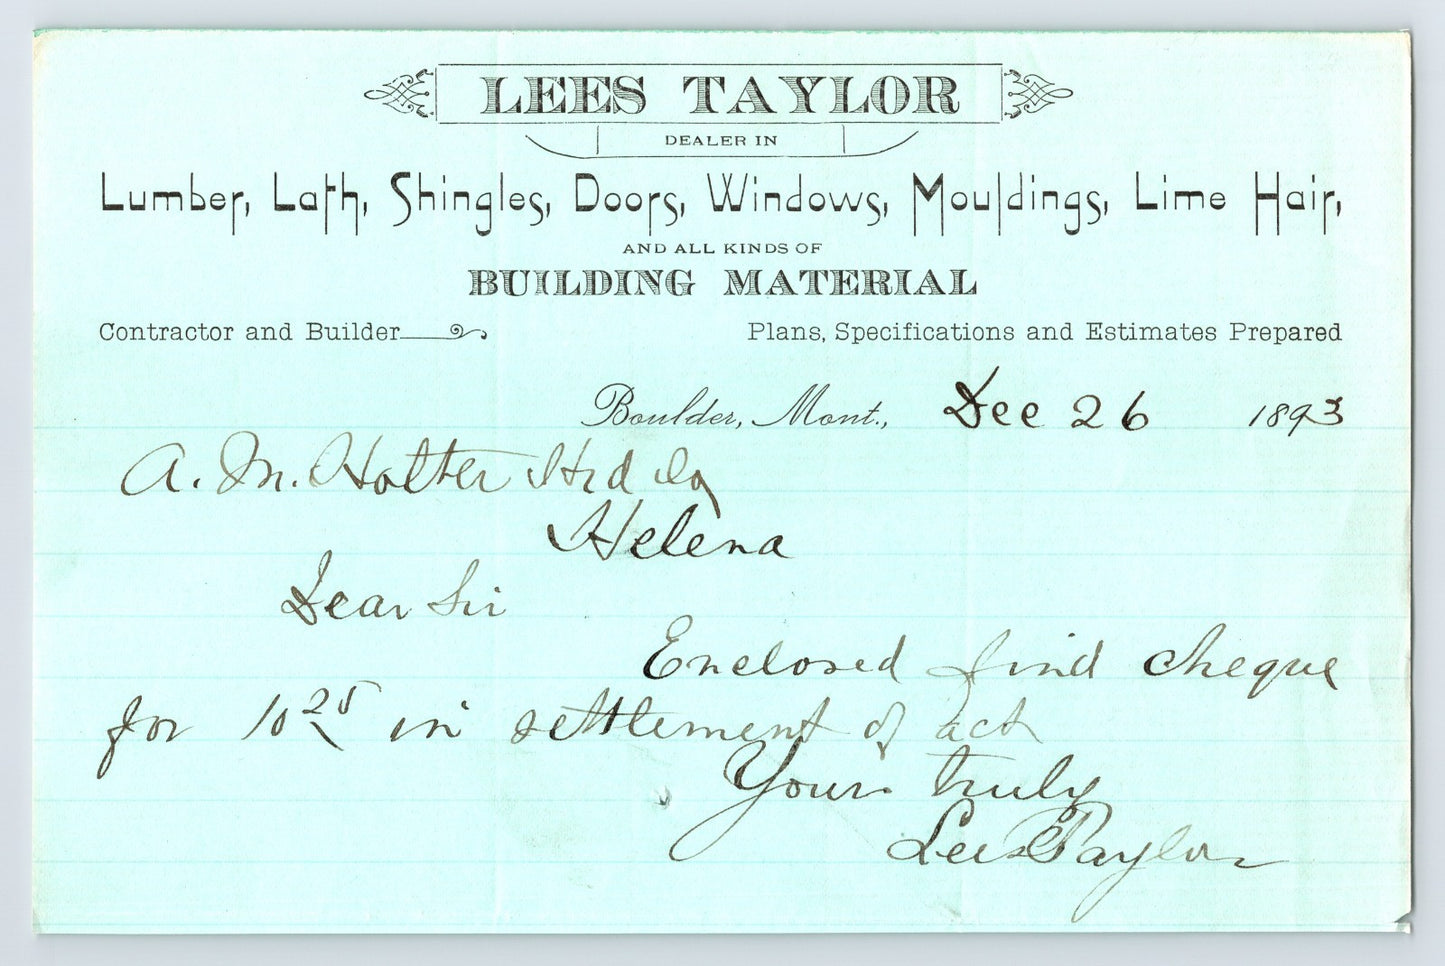 LEES TAYLOR
DEALER IN
Lumber, Lath, Shingles, Doors, Windows, Mouldings, Lime Hair,
AND ALL KINDS OF
BUILDING MATERIAL
Contractor and Builder Plans, Specifications and Estimates Prepared
Boulder, Mont., Dec 26 1893
A. M. Holter Hrd Co
Helena
Dear Sir
Enclosed find cheque
for 10 25 in settlement of act
Yours truly
Lees Taylor